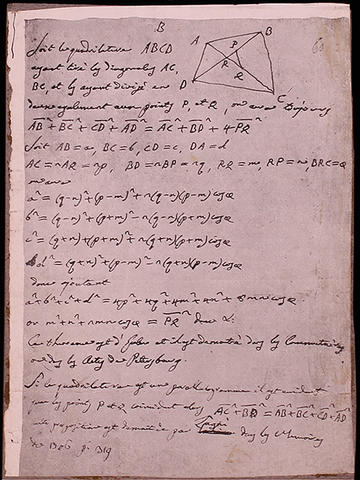 B
Soit le quadrilatere ABCD
ayant tiré les diagonales AC,
BC, et les ayant divisé en
deux également aux points P, et R, on aura
AB² + BC² + CD² + AD² = AC² + BD² + 4PR²
Soit AB = a, BC = b, CD = c, DA = d
AC = 2AR = 2p, BD = 2BP = 2q, PR = m, RP = n, BRC = φ
on aura
a² = (q-n)² + (p-m)² + 2(q-n)(p-m)cosφ
b² = (q-n)² + (p+m)² - 2(q-n)(p+m)cosφ
c² = (q+n)² + (p+m)² + 2(q+n)(p+m)cosφ
d² = (q+n)² + (p-m)² - 2(q+n)(p-m)cosφ
donc ajoutant
a² + b² + c² + d² = 4p² + 4q² + 4m² + 4n² + 8mn cosφ
or m² + n² + 2mn cosφ = PR² donc &:
Ce theoreme est d'Euler et il est demontré dans les Commentaires
ou dans les Actes de Petersbourg.
Si le quadrilatere est une parallelogramme il est evident
que les points P et R coincident alors AC² + BD² = AB² + BC² + CD² + AD²
cette proposition est demontrée par Lagni dans les Memoires
de 1706 p. 319
A B P R Q D C